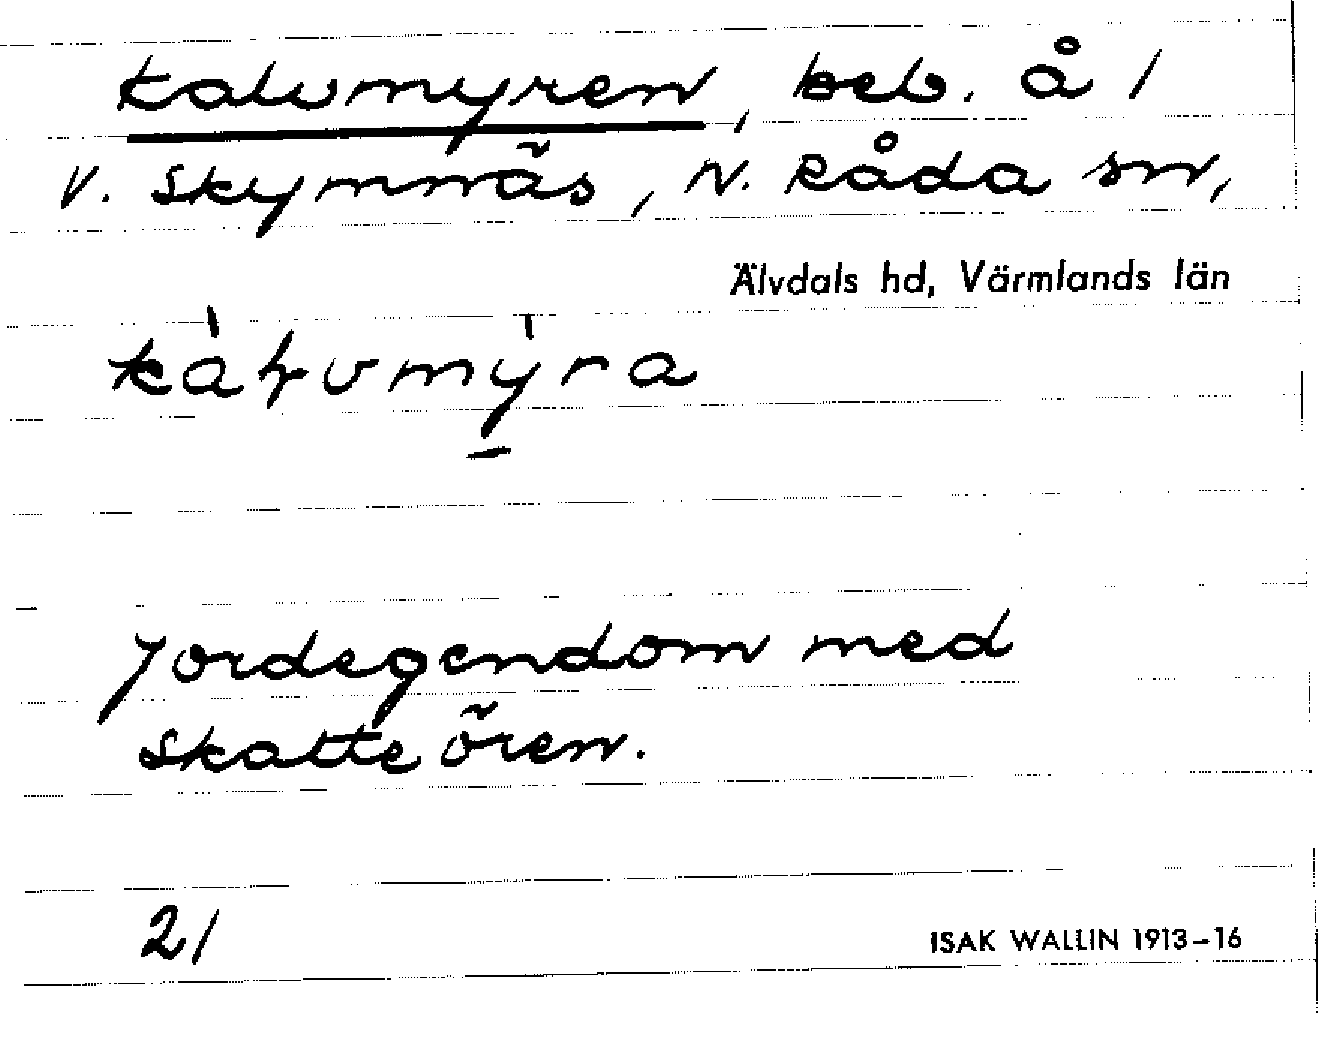 Kalvmyren, beb. å 1
V. Skymnäs, N. Råda sn,
Älvdals hd, Värmlands län
Jordegendom med
skatteören.
21
ISAK WALLIN 1913-16